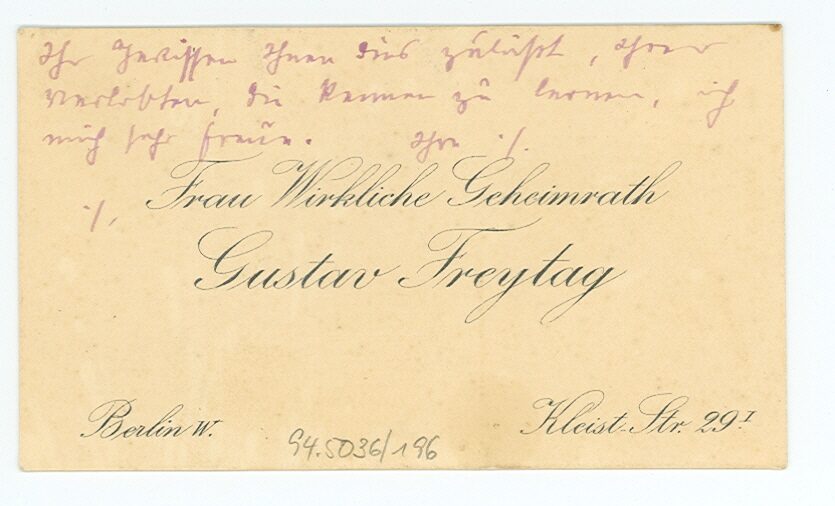 Ihr Gewissen Ihnen dies zuläßt, Ihrer
Verlobten, die kennen zu lernen, ich
mich sehr freue. Ihre ./.
./.
Frau Wirkliche Geheimrath
Gustav Freytag
Berlin W.
Kleist-Str. 29 I
94.5036/196